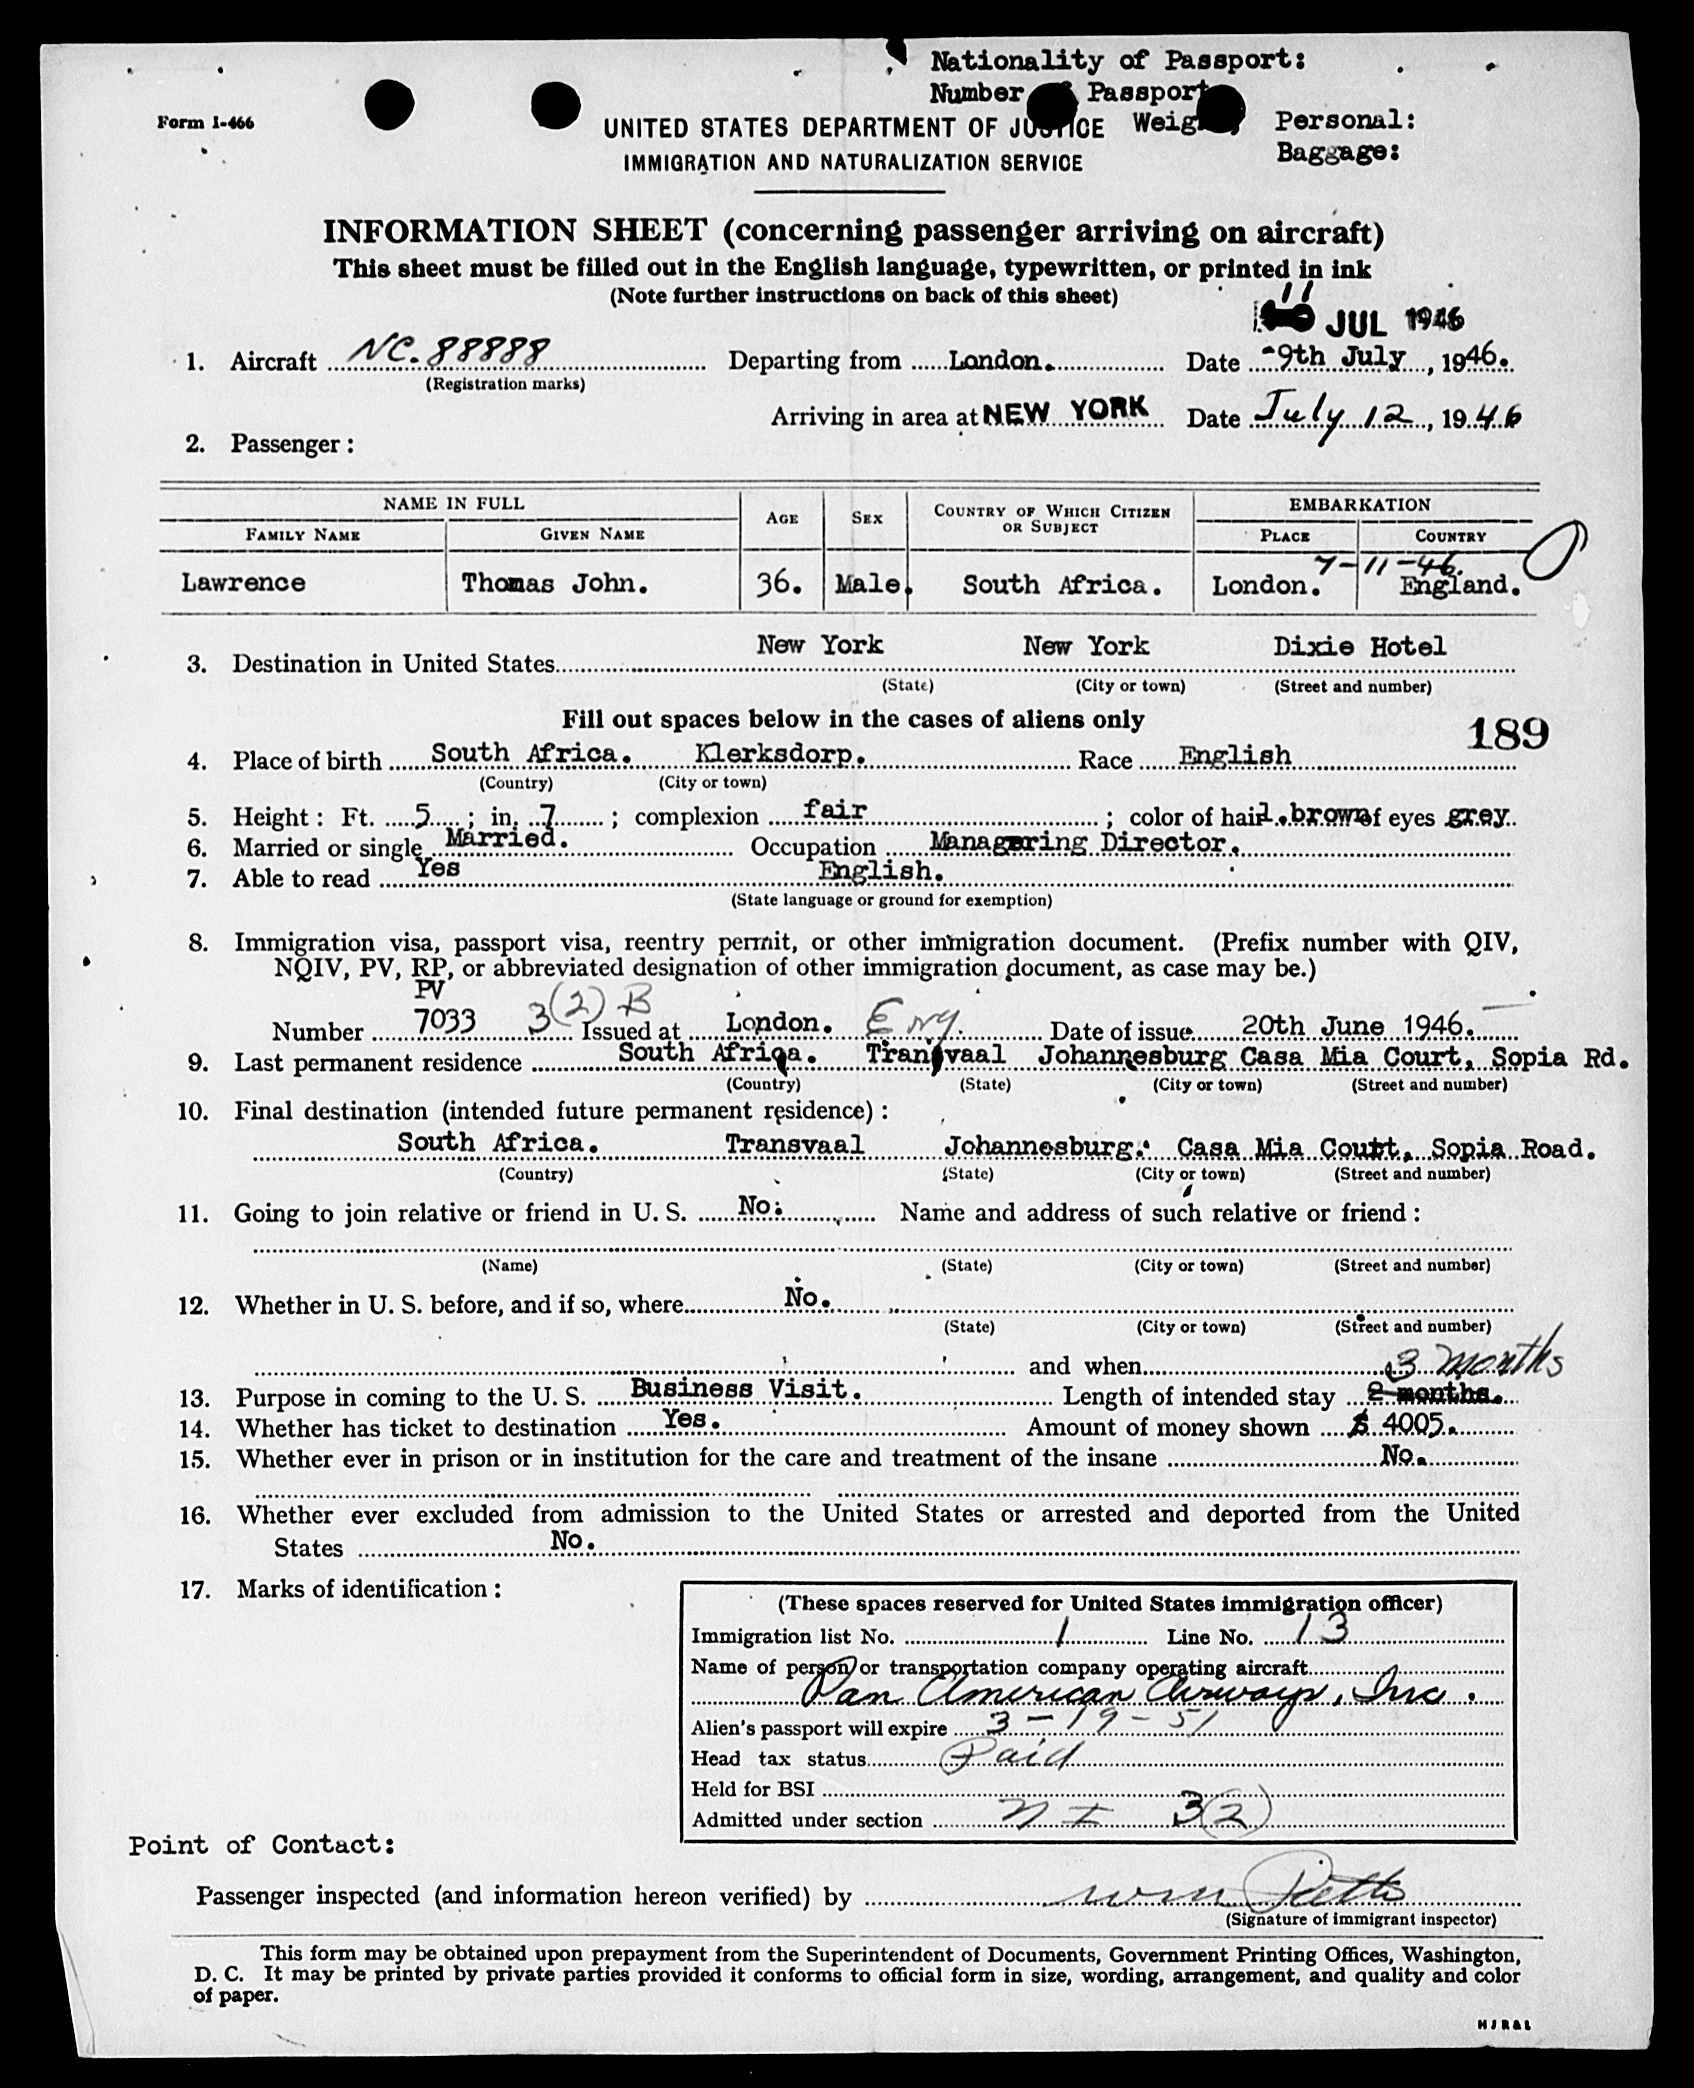 Nationality of Passport:
Number Passport
Form I-466
UNITED STATES DEPARTMENT OF JUSTICE Weig Personal:
IMMIGRATION AND NATURALIZATION SERVICE Baggage:
INFORMATION SHEET (concerning passenger arriving on aircraft)
This sheet must be filled out in the English language, typewritten, or printed in ink
(Note further instructions on back of this sheet)
11 JUL 1946
1. Aircraft NC. 88888 Departing from London. Date 9th July, 1946.
(Registration marks)
Arriving in area at NEW YORK Date July 12, 1946
2. Passenger:
NAME IN FULL
AGE SEX COUNTRY OF WHICH CITIZEN OR SUBJECT EMBARKATION
FAMILY NAME GIVEN NAME PLACE COUNTRY
7-11-46.
Lawrence Thomas John. 36. Male. South Africa. London. England.
3. Destination in United States New York New York Dixie Hotel
(State) (City or town) (Street and number)
Fill out spaces below in the cases of aliens only
189
4. Place of birth South Africa. Klerksdorp. Race English
(Country) (City or town)
5. Height: Ft. 5; in. 7; complexion fair; color of hair brown of eyes grey.
6. Married or single Married. Occupation Managering Director.
7. Able to read Yes English.
(State language or ground for exemption)
8. Immigration visa, passport visa, reentry permit, or other immigration document. (Prefix number with QIV,
NQIV, PV, RP, or abbreviated designation of other immigration document, as case may be.)
PV
Number 7033 3(2) B Issued at London. Eng. Date of issue 20th June 1946.
9. Last permanent residence South Africa. Transvaal Johannesburg Casa Mia Court, Sopia Rd.
(Country) (State) (City or town) (Street and number)
10. Final destination (intended future permanent residence):
South Africa. Transvaal Johannesburg. Casa Mia Court, Sopia Road.
(Country) (State) (City or town) (Street and number)
11. Going to join relative or friend in U. S. No. Name and address of such relative or friend:
(Name) (State) (City or town) (Street and number)
12. Whether in U. S. before, and if so, where No.
(State) (City or town) (Street and number)
and when 3 months
13. Purpose in coming to the U. S. Business Visit. Length of intended stay 2 months.
14. Whether has ticket to destination Yes. Amount of money shown $ 4005.
15. Whether ever in prison or in institution for the care and treatment of the insane No.
16. Whether ever excluded from admission to the United States or arrested and deported from the United
States No.
17. Marks of identification:
(These spaces reserved for United States immigration officer)
Immigration list No. 1 Line No. 13
Name of person or transportation company operating aircraft
Pan American Airways, Inc.
Alien's passport will expire 3-19-51
Head tax status Paid
Held for BSI
Admitted under section NI 3(2)
Point of Contact:
Passenger inspected (and information hereon verified) by
(Signature of immigrant inspector)
This form may be obtained upon prepayment from the Superintendent of Documents, Government Printing Offices, Washington,
D. C. It may be printed by private parties provided it conforms to official form in size, wording, arrangement, and quality and color
of paper.